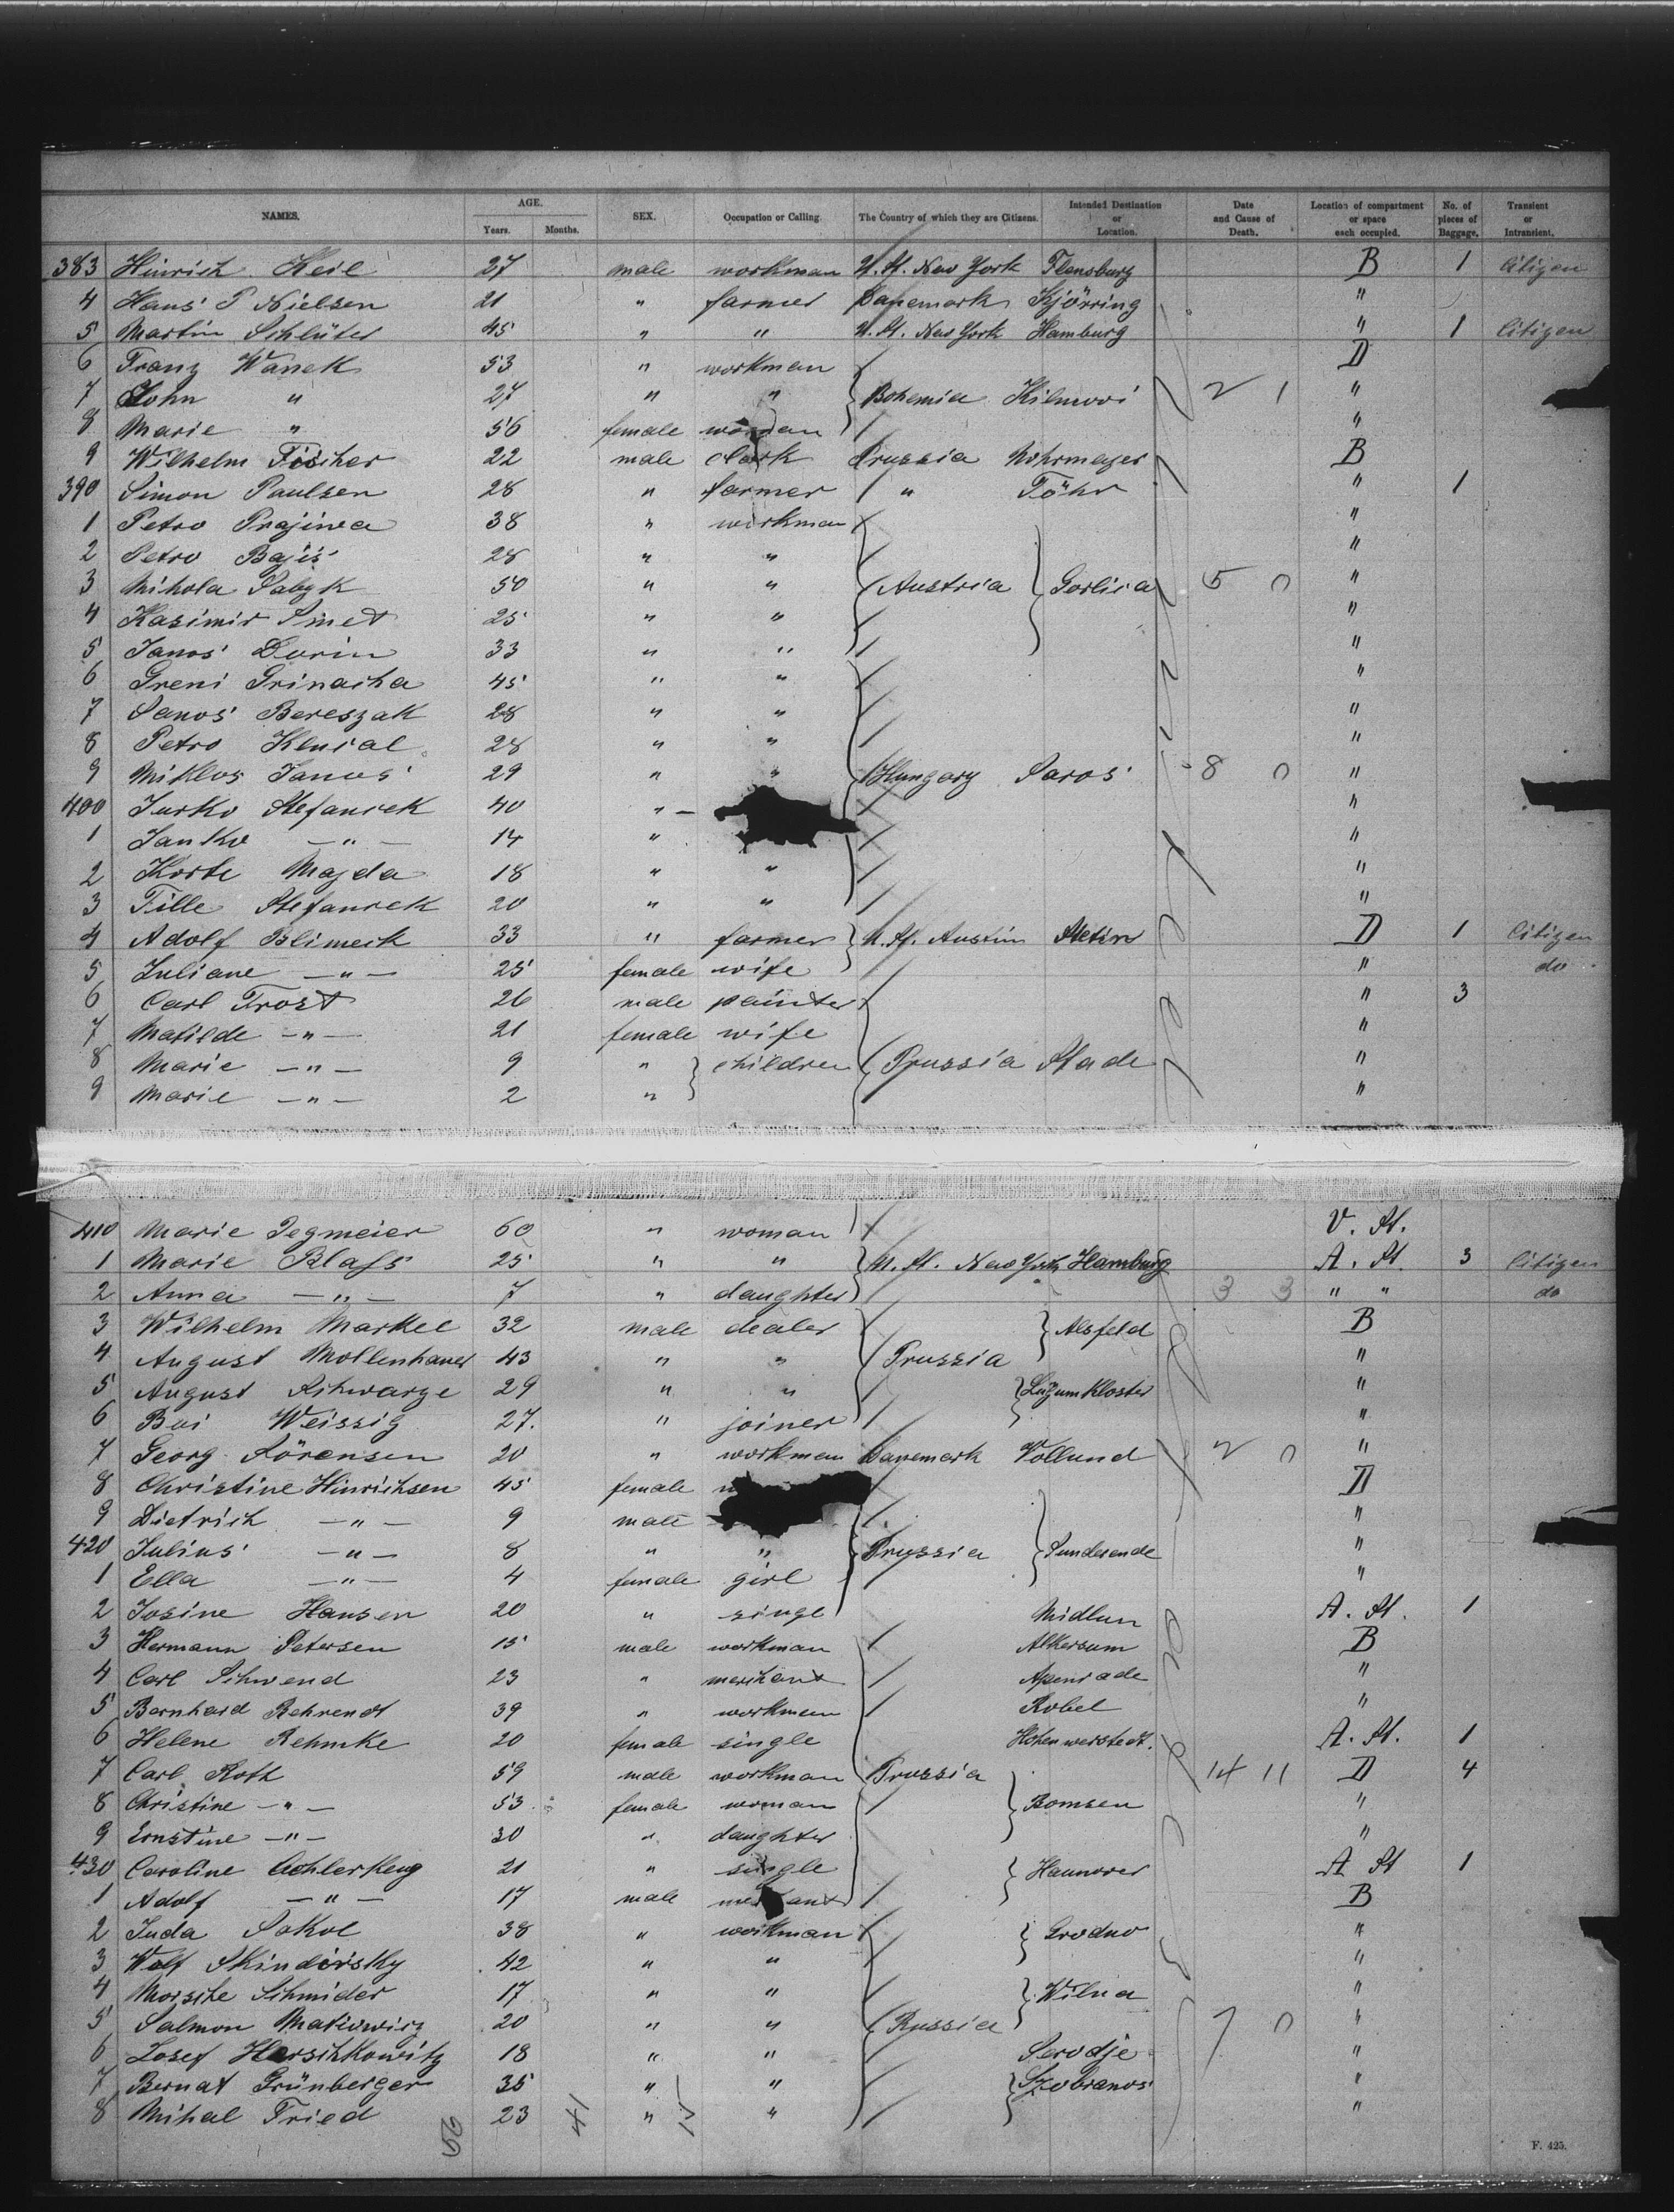 NAMES. AGE. Years. Months. SEX. Occupation or Calling. The Country of which they are Citizens. Intended Destination or Location. Date and Cause of Death. Location of compartment or space each occupied. No. of pieces of Baggage. Transient or Intransient.
383 Hinrich Keil 27 male workman U. St. New York Flensburg B 1 Citizen
4 Hans P Nielsen 21 " farmer Danemark Hjörring "
5 Martin Schlüter 45 " " U. St. New York Hamburg " 1 Citizen
6 Franz Wanek 53 " workman D
7 John " 27 " " Bohemia 2 1 "
8 Marie " 56 female woman "
9 Wilhelm Fischer 22 male clerk Prussia B
390 Simon Paulsen 28 " farmer " Föhr " 1
1 Petro 38 " workman "
2 Petro 28 " " "
3 Mihola 50 " " Austria Gorlica 5 0 "
4 Kasimir 25 " " "
5 Janos 33 " " "
6 45 " " "
7 Janos Bereszak 28 " " "
8 Petro 28 " " "
9 Miklos Janos 29 " " Hungary Saros 8 0 "
400 Jurko Stefancek 40 " "
1 Janko — " — 14 " "
2 Majda 18 " " "
3 Stefancek 20 " " "
4 Adolf Klimeck 33 " farmer U. St. Austin Stetin D 1 Citizen
5 Juliane — " — 25 female wife " do
6 Carl Frost 26 male painter " 3
7 Matilde — " — 21 female wife "
8 Marie — " — 9 " children Prussia Stade "
9 Marie — " — 2 " "
410 Marie Degmeier 60 " woman V. St.
1 Marie Blass 25 " " U. St. New York Hamburg A. St. 3 Citizen
2 Anna — " — 7 " daughter 3 3 " " do
3 Wilhelm Markel 32 male dealer Alsfeld B
4 August Mollenhauer 43 " " Prussia "
5 August Schwarze 29 " " Lügumkloster "
6 Boi Weissig 27. " joiner "
7 Georg Sörensen 20 " workman Danemark Vollund 2 0 "
8 Christine Hinrichsen 45 female D
9 Dietrich — " — 9 male "
420 Julius — " — 8 " " Prussia "
1 Ella — " — 4 female girl "
2 Josine Hansen 20 " singl Midlum A. St. 1
3 Hermann Petersen 15 male workman Alkersum B
4 Carl Schwend 23 " merchant Apenrade "
5 Bernhard Behrendt 39 " workman Robel "
6 Helene Rehmke 20 female single Hohenwerstedt. A. St. 1
7 Carl Roth 59 male workman Prussia 14 11 D 4
8 Christine — " — 53 female woman Bomsen "
9 Ernstine — " — 30 " daughter "
430 Caroline 21 " single Hannover A St 1
1 Adolf — " — 17 male B
2 Juda Sokol 38 " workman Grodno "
3 Wolf Skindirsky 42 " " "
4 Morsche Schmider 17 " " Wilna "
5 Salmon 20 " " Russia 7 0 "
6 Josef Herschkowitz 18 " " Serodje "
7 Bernat Grünberger 35 " " Szobranos "
8 Mihal Fried 23 " " "
29 14 15
F. 425.